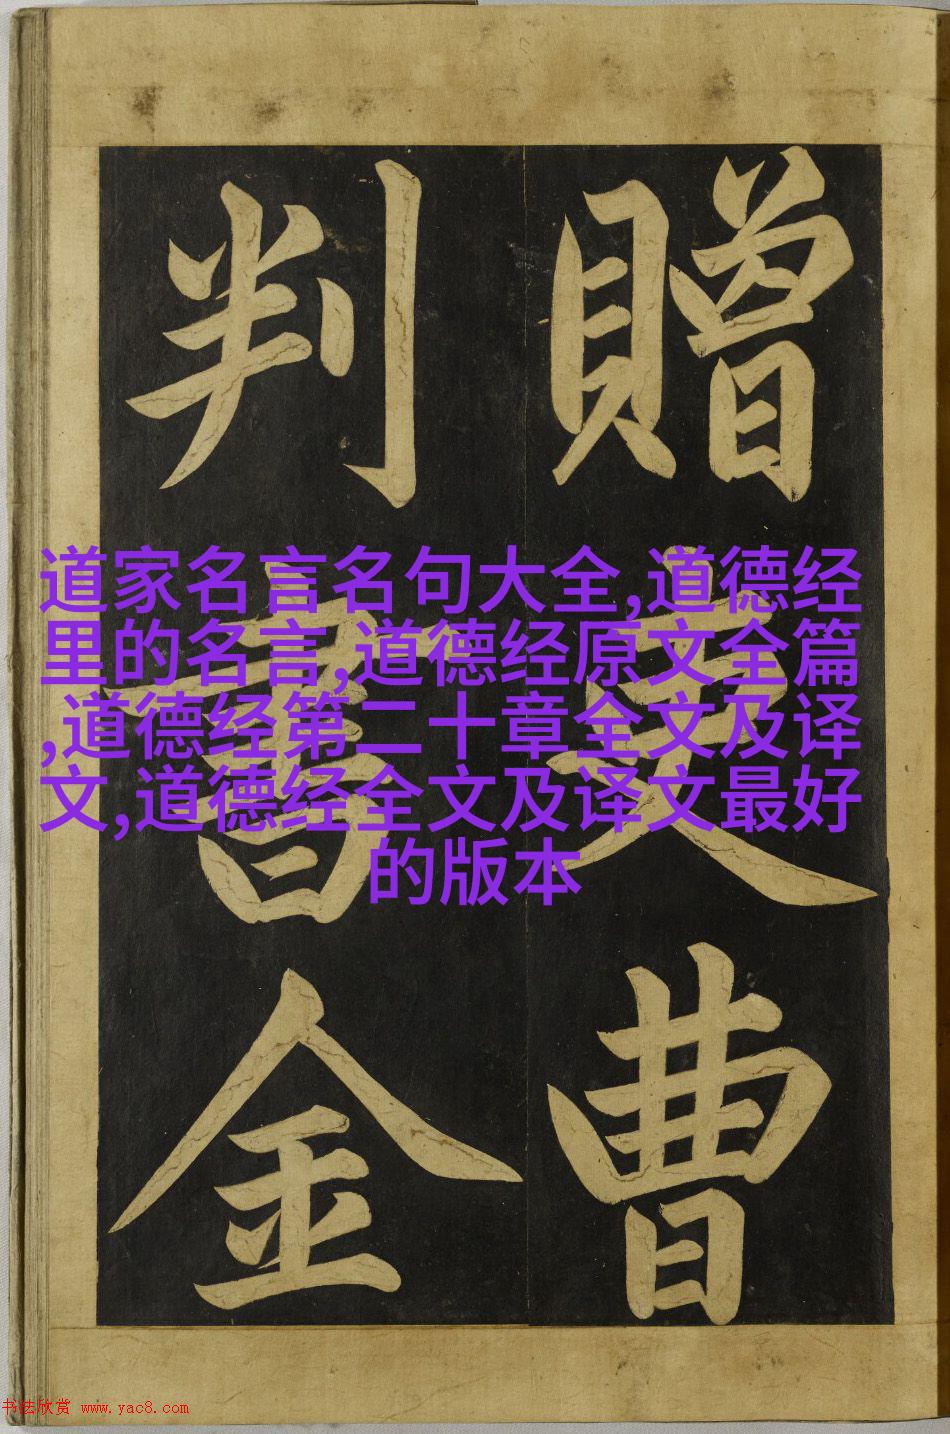 贈吏曹
判書金
道家名言名句大全,道德经
里的名言,道德经原文全篇
,道德经第二十章全文及译
文,道德经全文及译文最好
的版本
书法欣赏 www.yac8.com